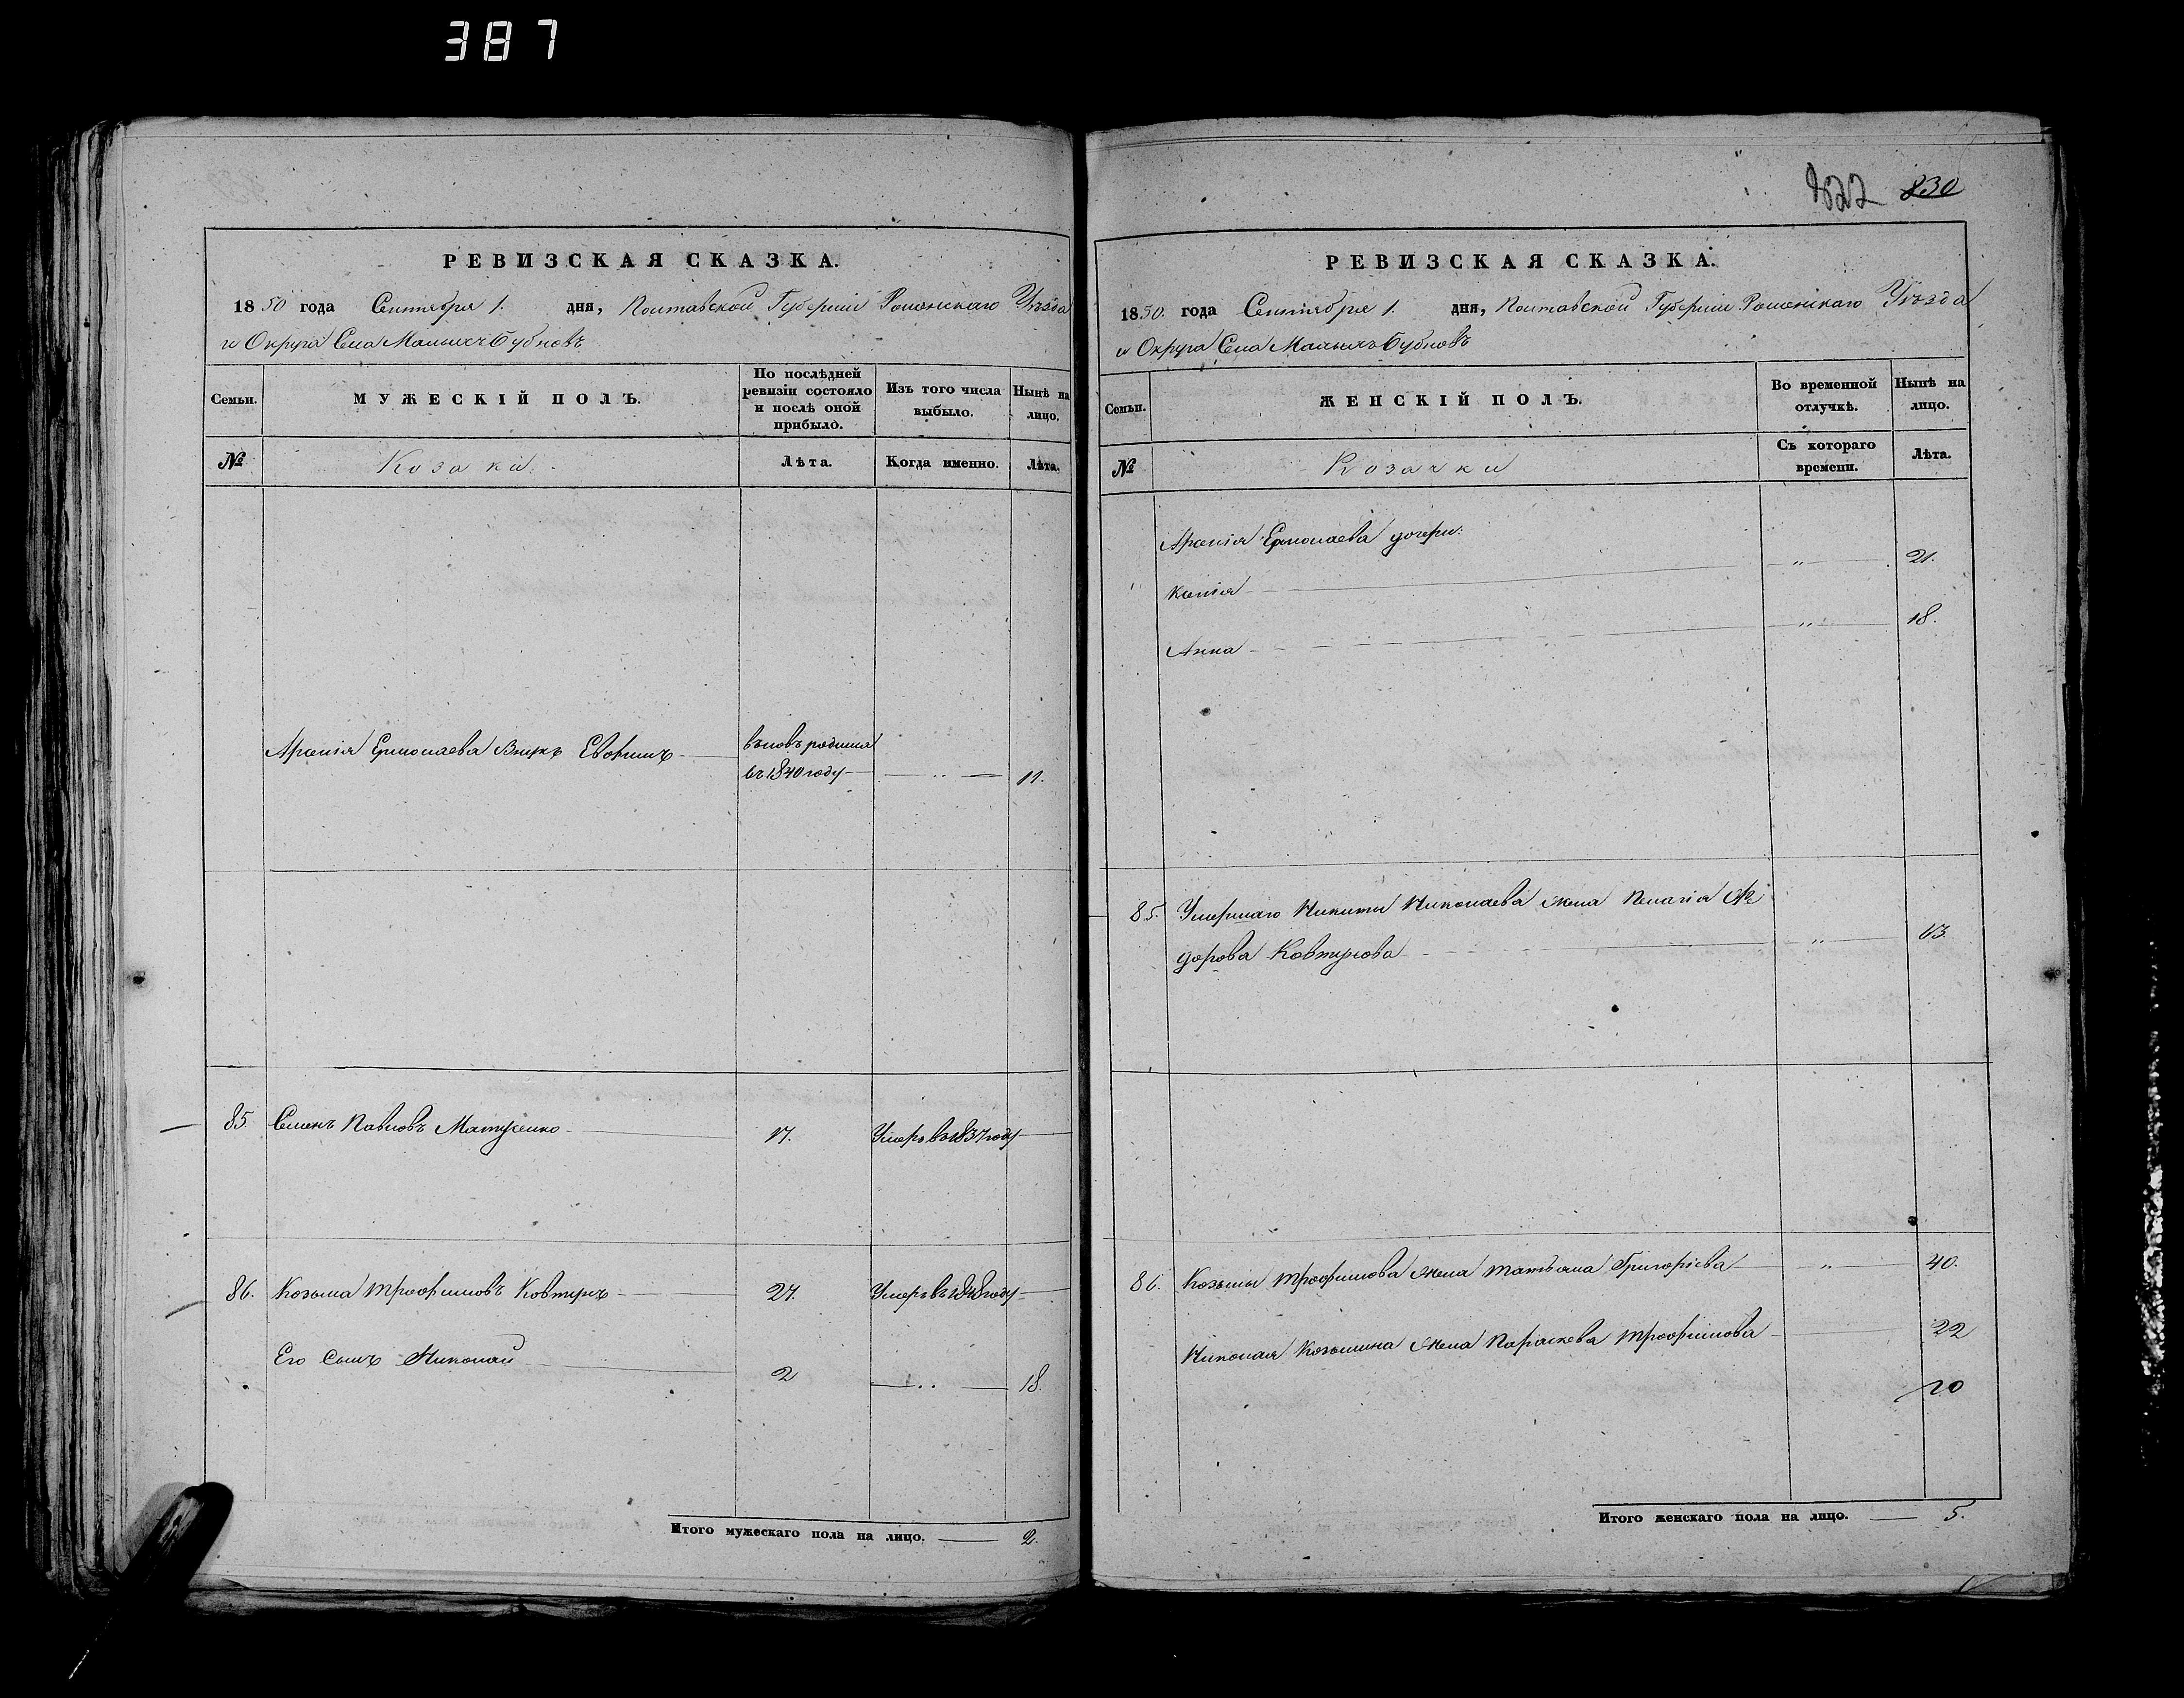 387
РЕВИЗСКАЯ СКАЗКА.
1850 года Сентября 1. дня, Полтавской Губерніи Роменскаго Уѣзда
и Округа Села Малыхъ Бубновъ
Семьи.
МУЖЕСКІЙ ПОЛЪ.
По послѣдней ревизіи состояло и послѣ оной прибыло.
Изъ того числа выбыло.
Нынѣ на лицо.
№
Козаки
Лѣта.
Когда именно.
Лѣта.
Арсенія Ермолаева Внукъ Евфимъ
вновь родился
въ 1840 году
11.
85. Семенъ Павловъ Матусенко 17. Умеръ въ 1837 году
86. Козьма Трофимовъ Ковтунъ 24. Умеръ въ 1848 году
Его Сынъ Николай 2 18.
Итого мужескаго пола на лицо. 2.
822 830
РЕВИЗСКАЯ СКАЗКА.
1850. года Сентября 1. дня, Полтавской Губерніи Роменскаго Уѣзда
и Округа Села Малыхъ Бубновъ
Семьи.
ЖЕНСКІЙ ПОЛЪ.
Во временной отлучкѣ.
Нынѣ на лицо.
№
Козачки
Съ котораго времени.
Лѣта.
Арсенія Ермолаева дочери:
Ксенія " 21.
Анна " 18.
85. Умершаго Никиты Николаева жена Пелагія
дорова Ковтунова "
86. Козьмы Трофимова жена Татьяна Григоріева " 40.
Николая Козьмина жена Параскева Трофимова 22
20
Итого женскаго пола на лицо. 5.